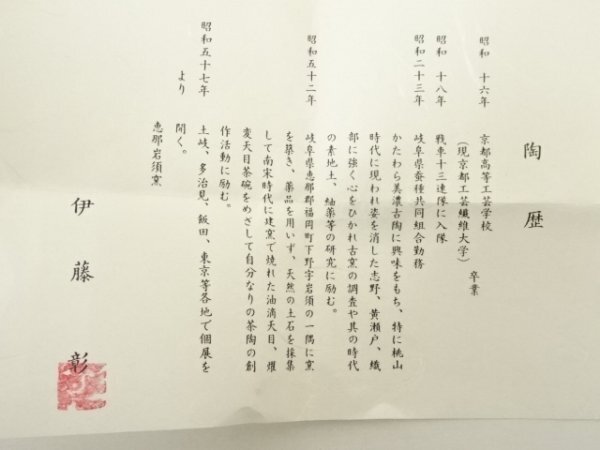 陶歴
昭和 十六年 京都高等工芸学校
(現京都工芸繊維大学) 卒業
昭和 十八年 戦車十三連隊に入隊
昭和二十三年 岐阜県蚕種共同組合勤務
かたわら美濃古陶に興味をもち、特に桃山
時代に現われ姿を消した志野、黄瀬戸、織
部に強く心をひかれ古窯の調査や其の時代
の素地土、釉薬等の研究に励む。
昭和五十二年 岐阜県恵那郡福岡町下野字岩須の一隅に窯
を築き、薬品を用いず、天然の土石を採集
して南宋時代に建窯で焼れた油滴天目、燿
変天目茶碗をめざして自分なりの茶陶の創
作活動に励む。
昭和五十七年 土岐、多治見、飯田、東京等各地で個展を
より 開く。
恵那岩須窯
伊藤 彰